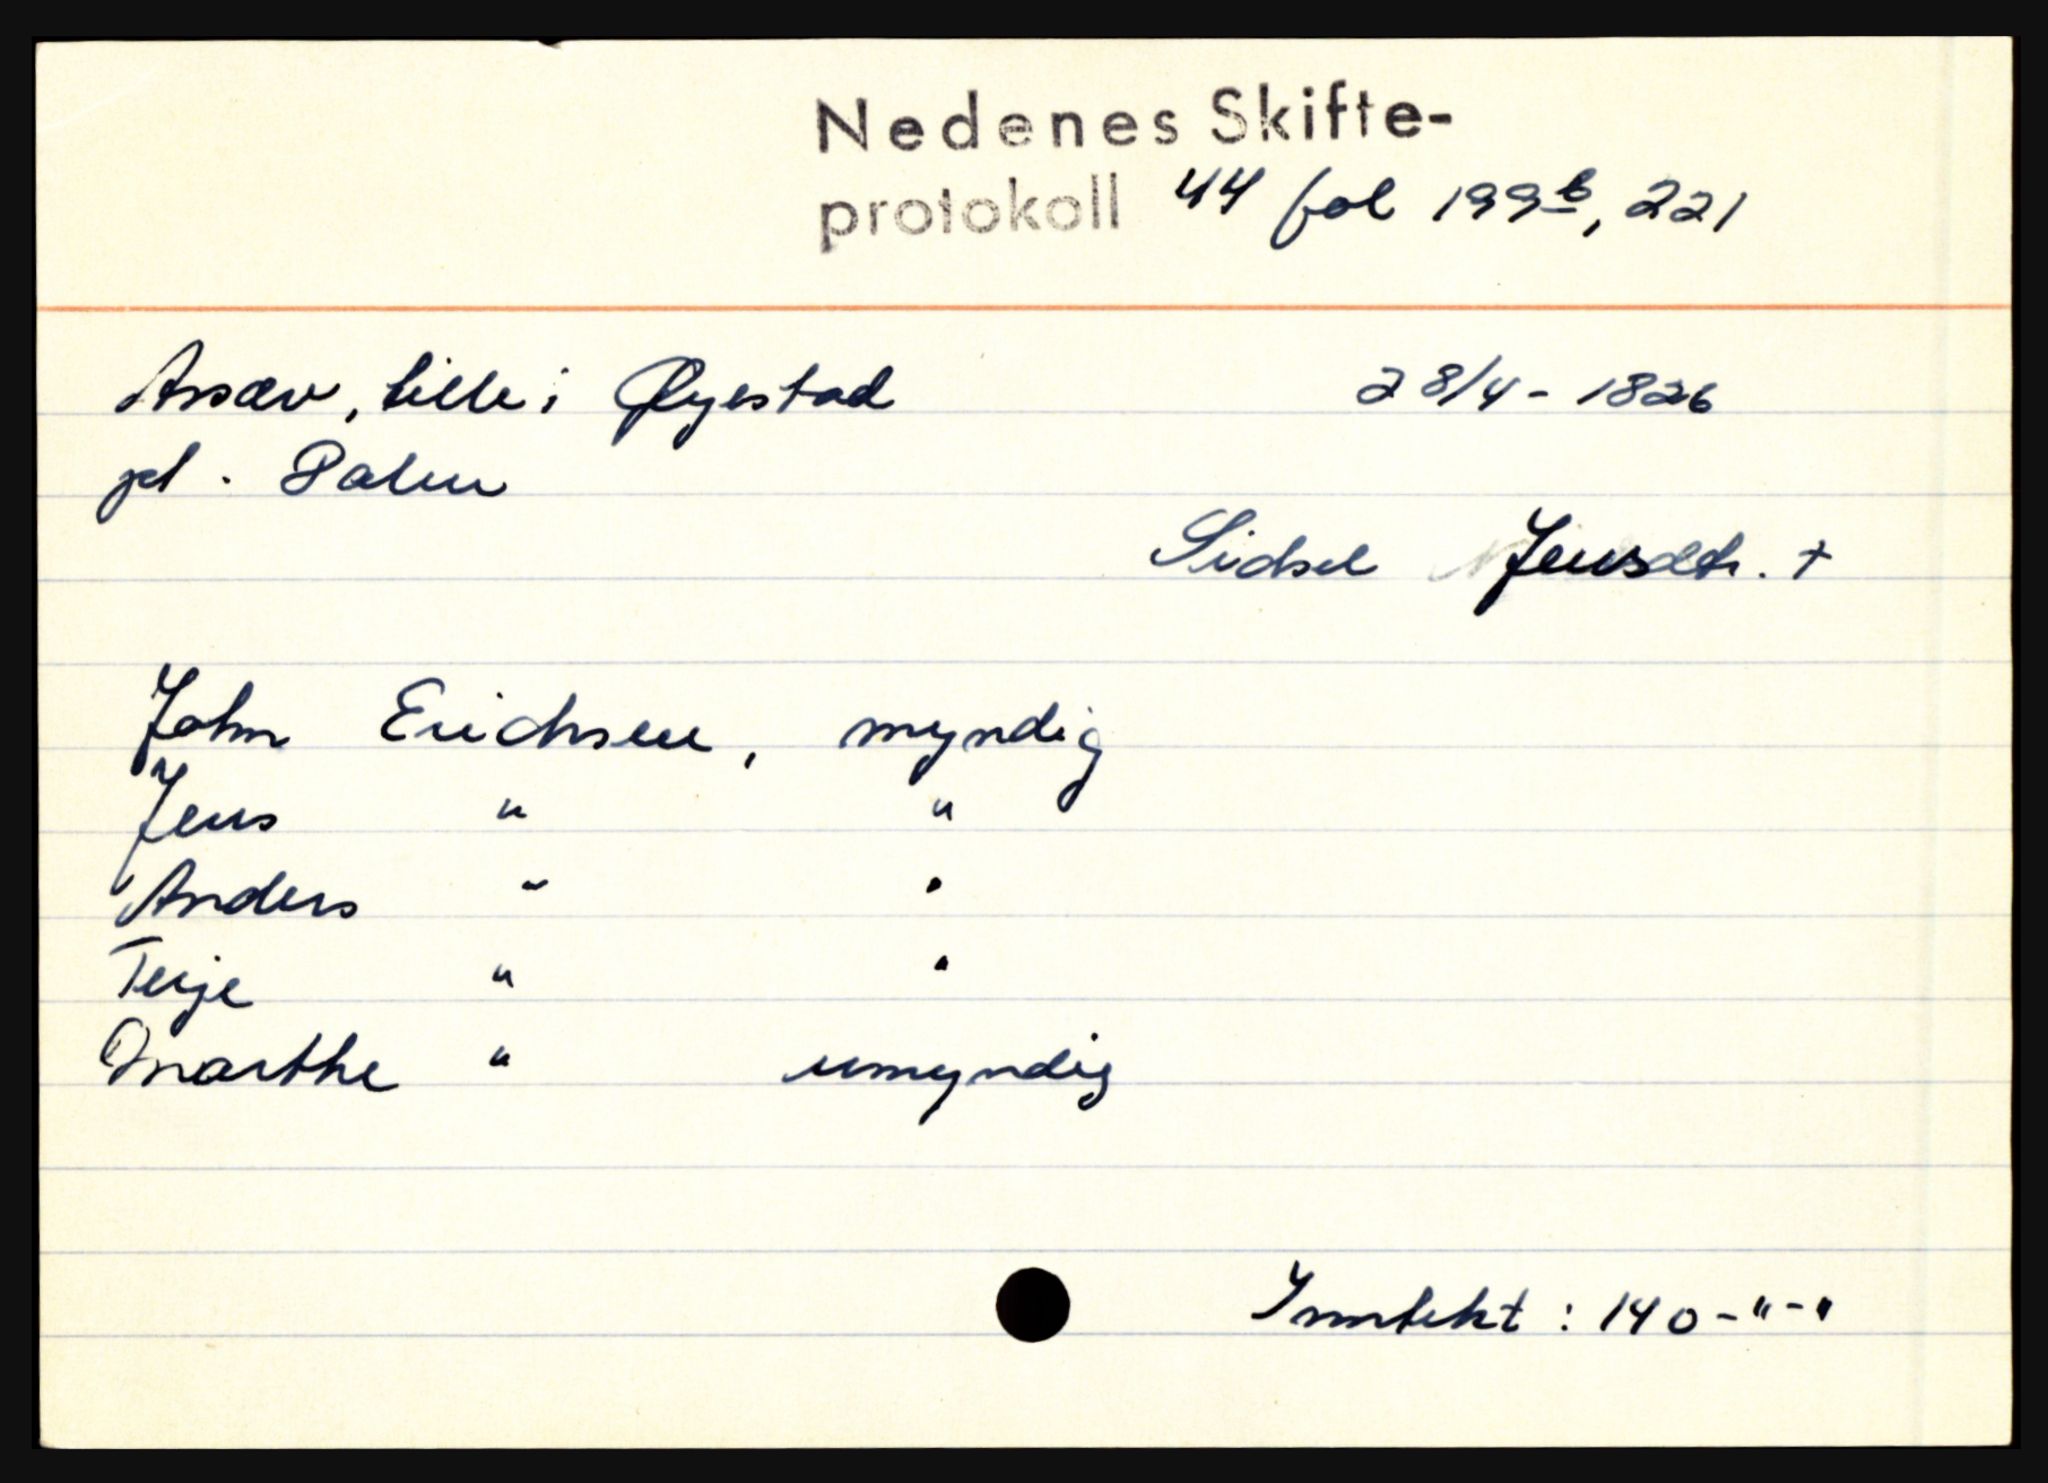 Nedenes Skifte-
protokoll 44 fol 199b, 221
Assæv, lille i Øyestad 28/4 - 1826
pl. Palen
Sidsel Jensdtr. +
John Erichsen, myndig
Jens " "
Anders " "
Terje " "
Marthe " umyndig
Inntekt : 140-"-"